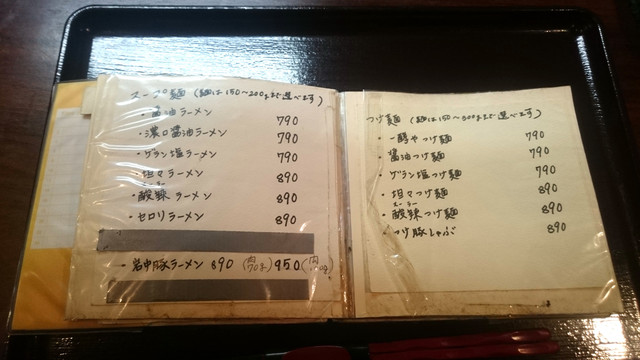 スープ麺（麺は150〜200gまで選べます）
・醤油ラーメン 790
・濃口醤油ラーメン 790
・ゲラン塩ラーメン 790
・坦々ラーメン 890
スーラー
・酸辣ラーメン 890
・セロリラーメン 890
・岩中豚ラーメン 890（肉70g）950（肉
つけ麺（麺は150〜300gまで選べます）
・一醇やつけ麺 790
・醤油つけ麺 790
・ゲラン塩つけ麺 790
・坦々つけ麺 890
スーラー
・酸辣つけ麺 890
・つけ豚しゃぶ 890